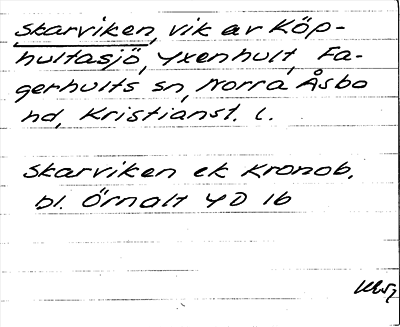 Skarviken, vik av Köp-
hultasjö, Yxenhult, Fa-
gerhults sn, Norra Åsbo
hd, Kristianst. l.
Skarviken ek Kronob.
bl. Örnalt 4D 1b